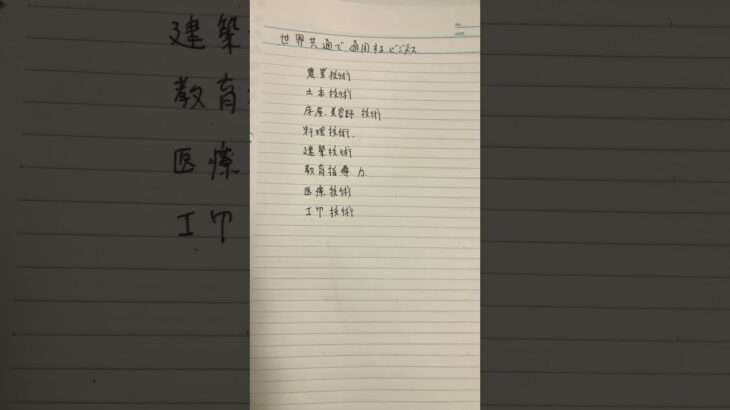 世界共通で通用するビジネス
農業技術
土木技術
床屋、美容師 技術
料理技術.
建築技術
教育指導力
医療技術
工
技術